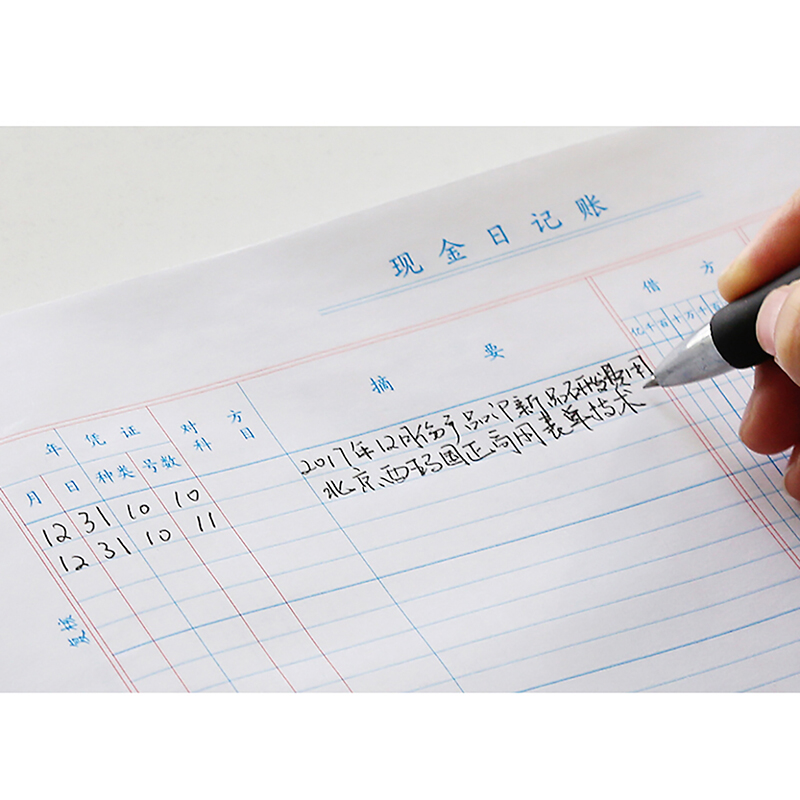 现金日记账
年 凭证 对方科目 摘要 借方
月 日 种类 号数 亿 千 百 十 万 千 百
12 31 10 10 2017年12月份产品及新品研发费用
12 31 10 11 北京西玛国正高用表单技术
复核